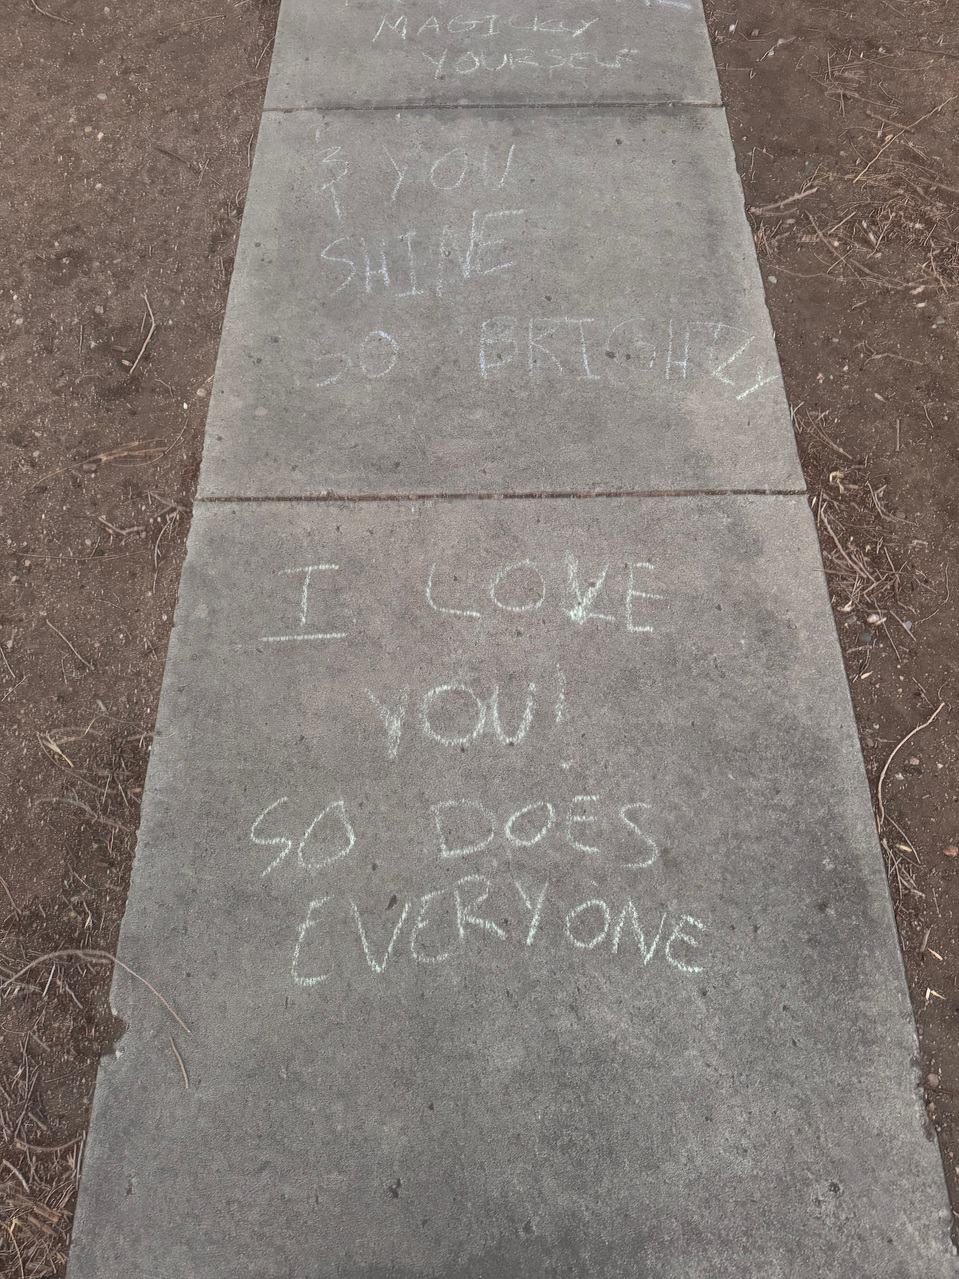 MAGICKLY
YOURSELF
& YOU
SHINE
SO BRIGHTLY
I LOVE
YOU!
SO DOES
EVERYONE